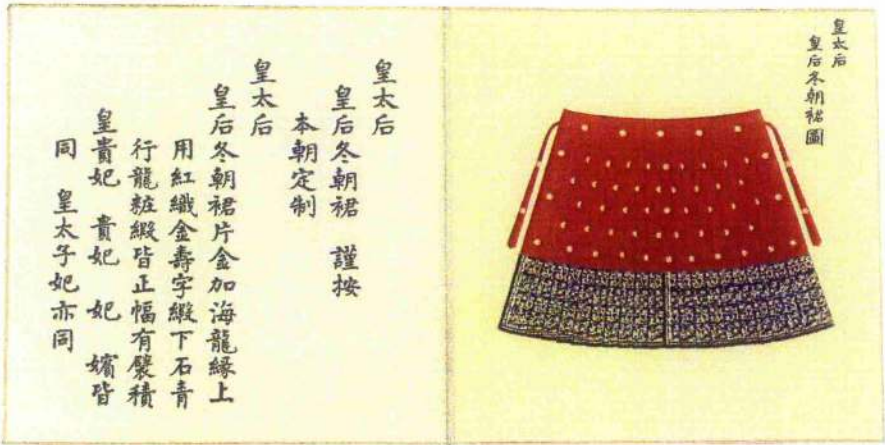 皇太后
皇后冬朝裙圖
皇太后
皇后冬朝裙 謹按
本朝定制
皇太后
皇后冬朝裙片金加海龍緣上
用紅織金壽字緞下石青
行龍粧緞皆正幅有襞積
皇貴妃 貴妃 妃 嬪皆
同 皇太子妃亦同